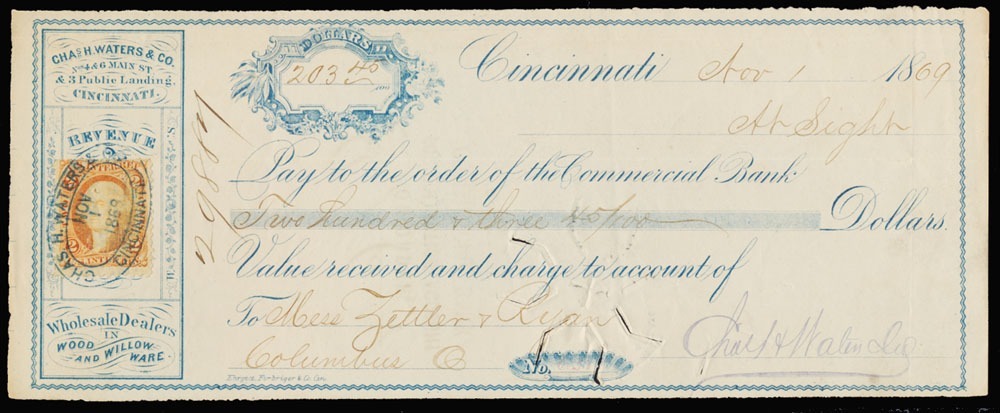 CHAS. H. WATERS & CO.
Nos 4 & 6 MAIN ST
& 3 Public Landing.
CINCINNATI.
REVENUE
CHAS. H. WATERS &
NOV
1
1869
CINCINNATI
Wholesale Dealers
IN
WOOD AND WILLOW
WARE.
DOLLARS
203 40/100
Cincinnati Nov 1 1869
At Sight
Pay to the order of the Commercial Bank
Two hundred & three 40/100 Dollars.
Value received and charge to account of
To Mess Zettler & Ryan
Columbus O
No.
Chas H Waters & Co